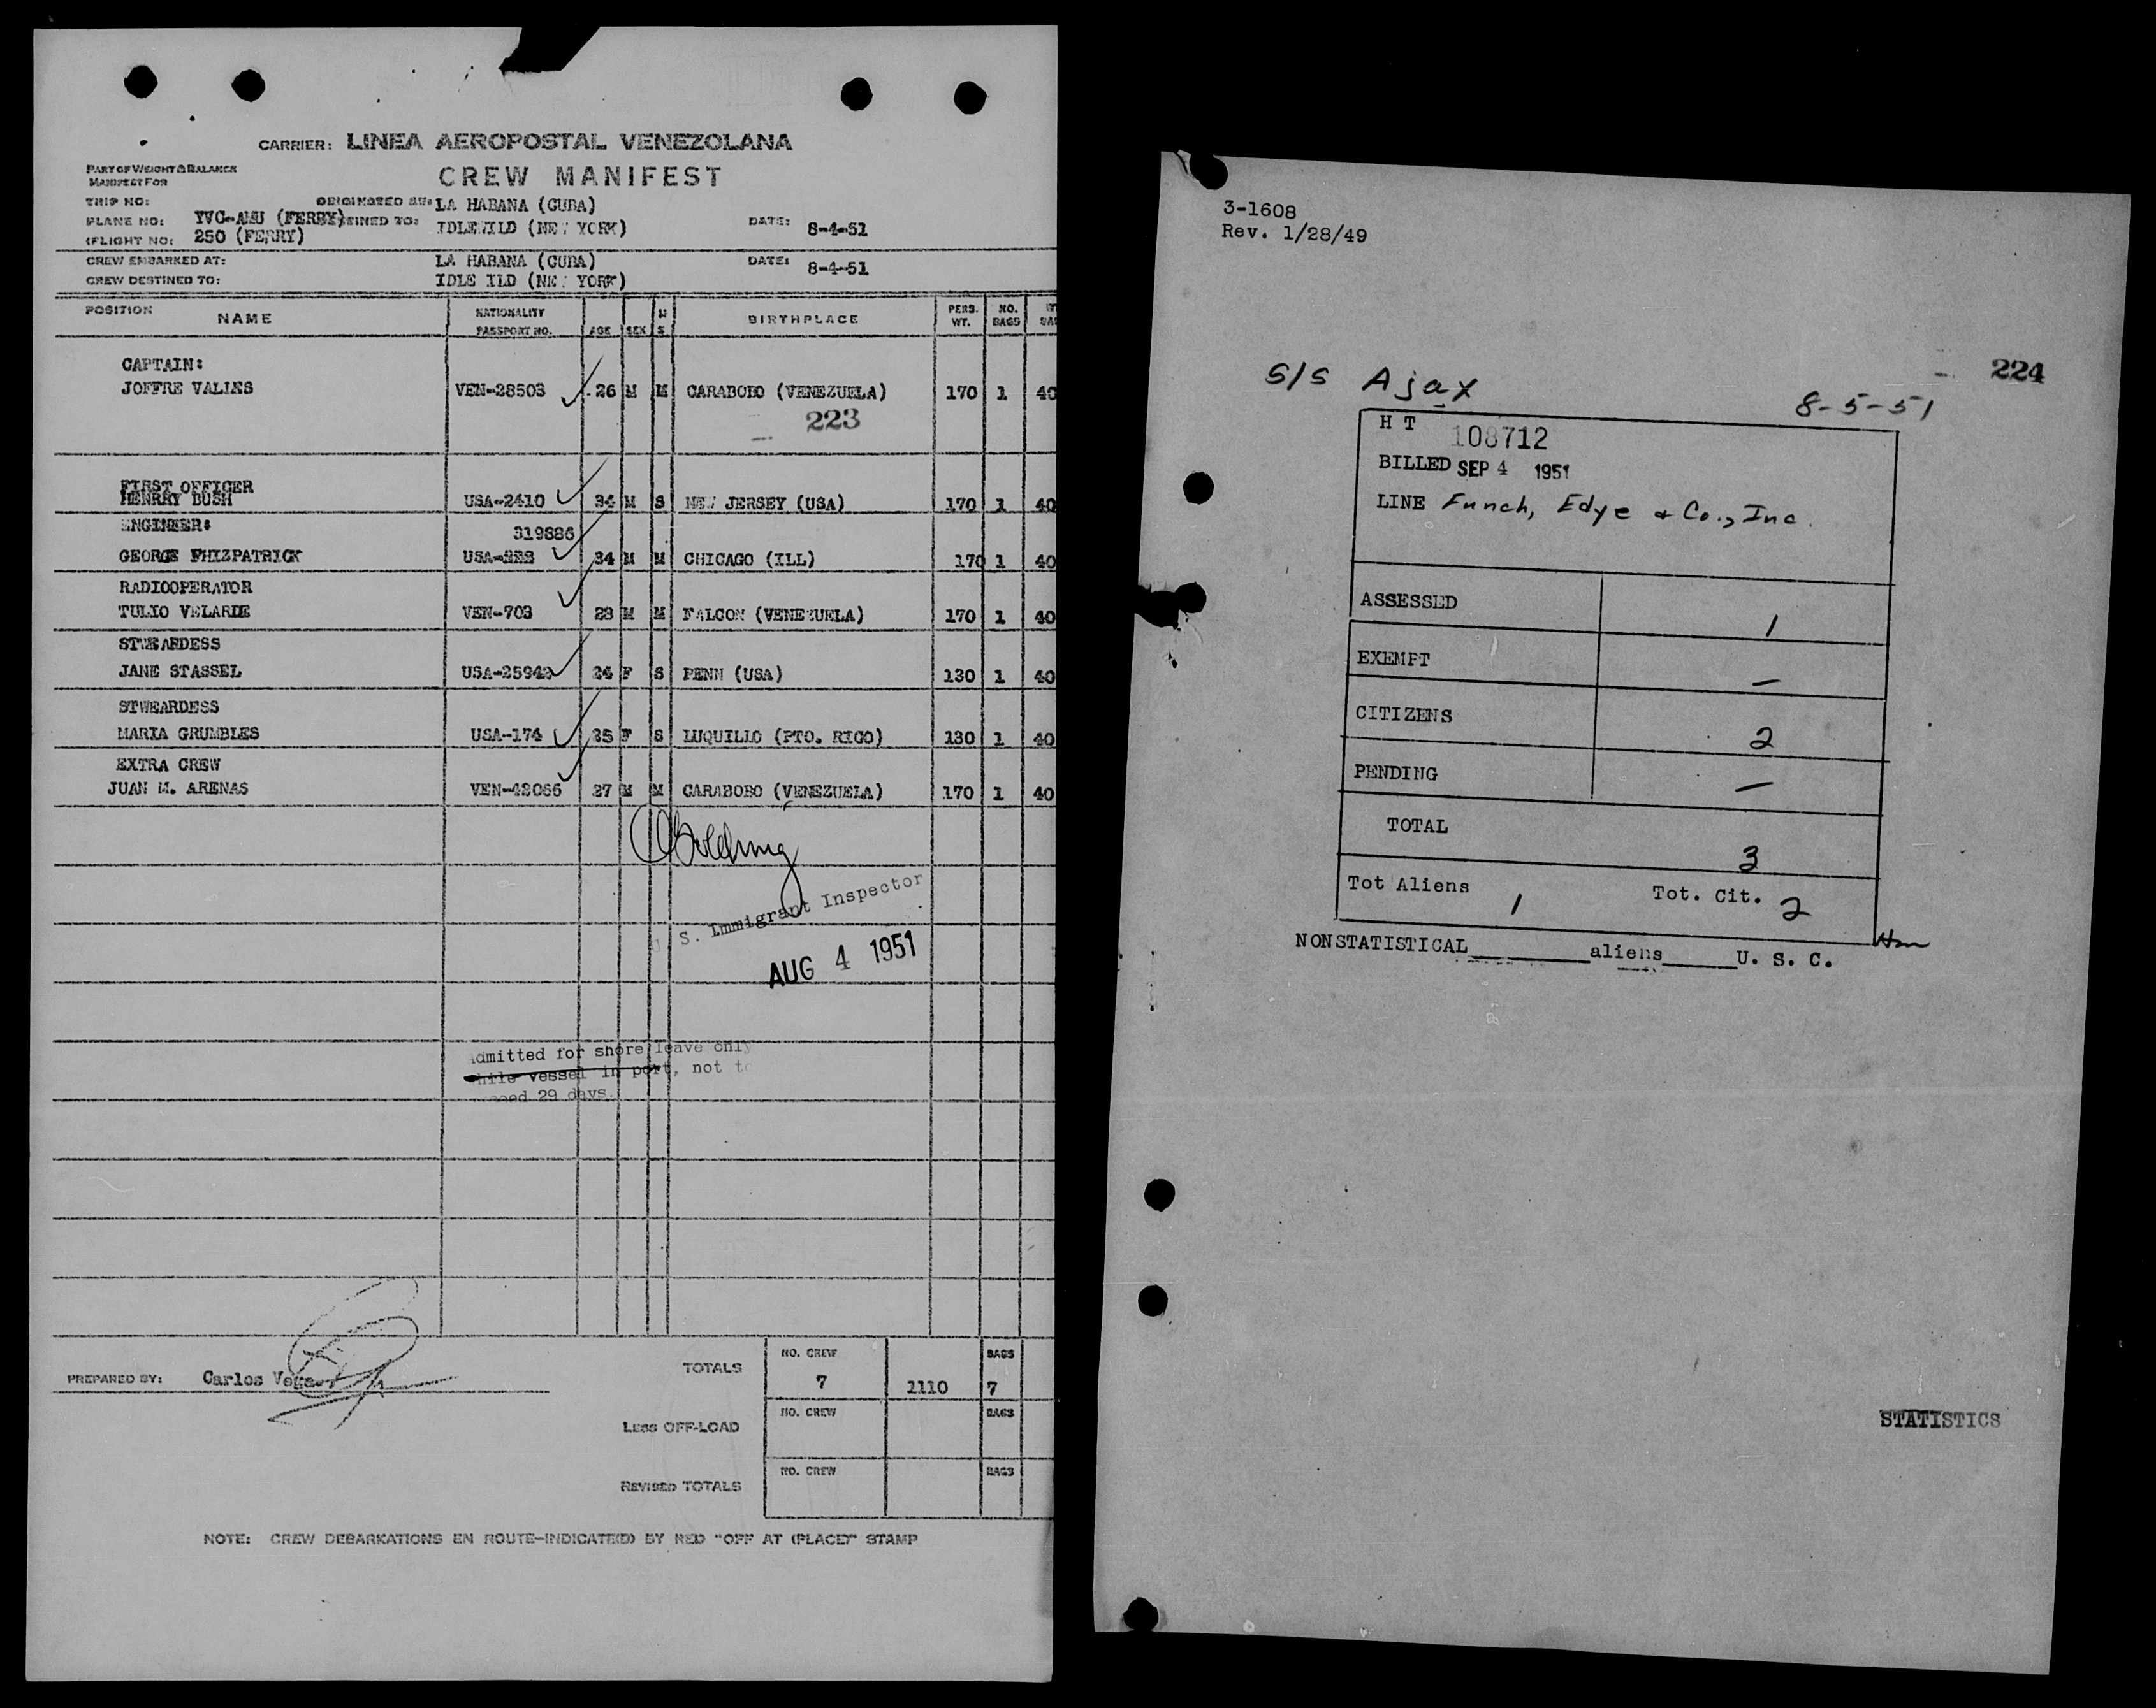 CARRIER: LINEA AEROPOSTAL VENEZOLANA
PART OF WEIGHT & BALANCE
MANIFEST FOR
CREW MANIFEST
TRIP NO: ORIGINATED AT: LA HABANA (CUBA)
PLANE NO: YVC-AMU (FERRY) TO: IDLEWILD (NE YORK) DATE: 8-4-51
(FLIGHT NO: 250 (FERRY)
CREW EMBARKED AT: LA HABANA (CUBA) DATE: 8-4-51
CREW DESTINED TO: IDLE ILD (NE YORK)
POSITION NAME NATIONALITY PASSPORT NO. AGE SEX M S BIRTHPLACE PERS. WT. NO. BAGS
CAPTAIN:
JOFFRE VALLES VEN-28503 26 M M CARABOBO (VENEZUELA) 170 1 40
223
FIRST OFFICER
HENRRY BUSH USA-2410 34 M S NEW JERSEY (USA) 170 1 40
ENGINEER:
319886
GEORGE FHIZPATRICK USA- 34 M M CHICAGO (ILL) 170 1 40
RADIOOPERATOR
TULIO VELARDE VEN-703 28 M M FALCON (VENEZUELA) 170 1 40
STWEARDESS
JANE STASSEL USA-25942 24 F S PENN (USA) 130 1 40
STWEARDESS
MARIA GRUMBLES USA-174 25 F S LUQUILLO (PTO. RICO) 130 1 40
EXTRA CREW
JUAN M. ARENAS VEN-42066 27 M M CARABOBO (VENEZUELA) 170 1 40
S. Immigrant Inspector
AUG 4 1951
admitted for shore leave only
while vessel in port, not to
29 days.
PREPARED BY: Carlos Vega
TOTALS NO. CREW 7 1110 BAGS 7
LESS OFF-LOAD NO. CREW BAGS
REVISED TOTALS NO. CREW BAGS
NOTE: CREW DEBARKATIONS EN ROUTE-INDICATE(D) BY RED "OFF AT (PLACE)" STAMP
3-1608
Rev. 1/28/49
224
S/S Ajax 8-5-51
H T 108712
BILLED SEP 4 1951
LINE Funch, Edye & Co., Inc.
ASSESSED 1
EXEMPT —
CITIZENS 2
PENDING —
TOTAL 3
Tot Aliens 1 Tot. Cit. 2
NONSTATISTICAL______aliens______U. S. C.
STATISTICS